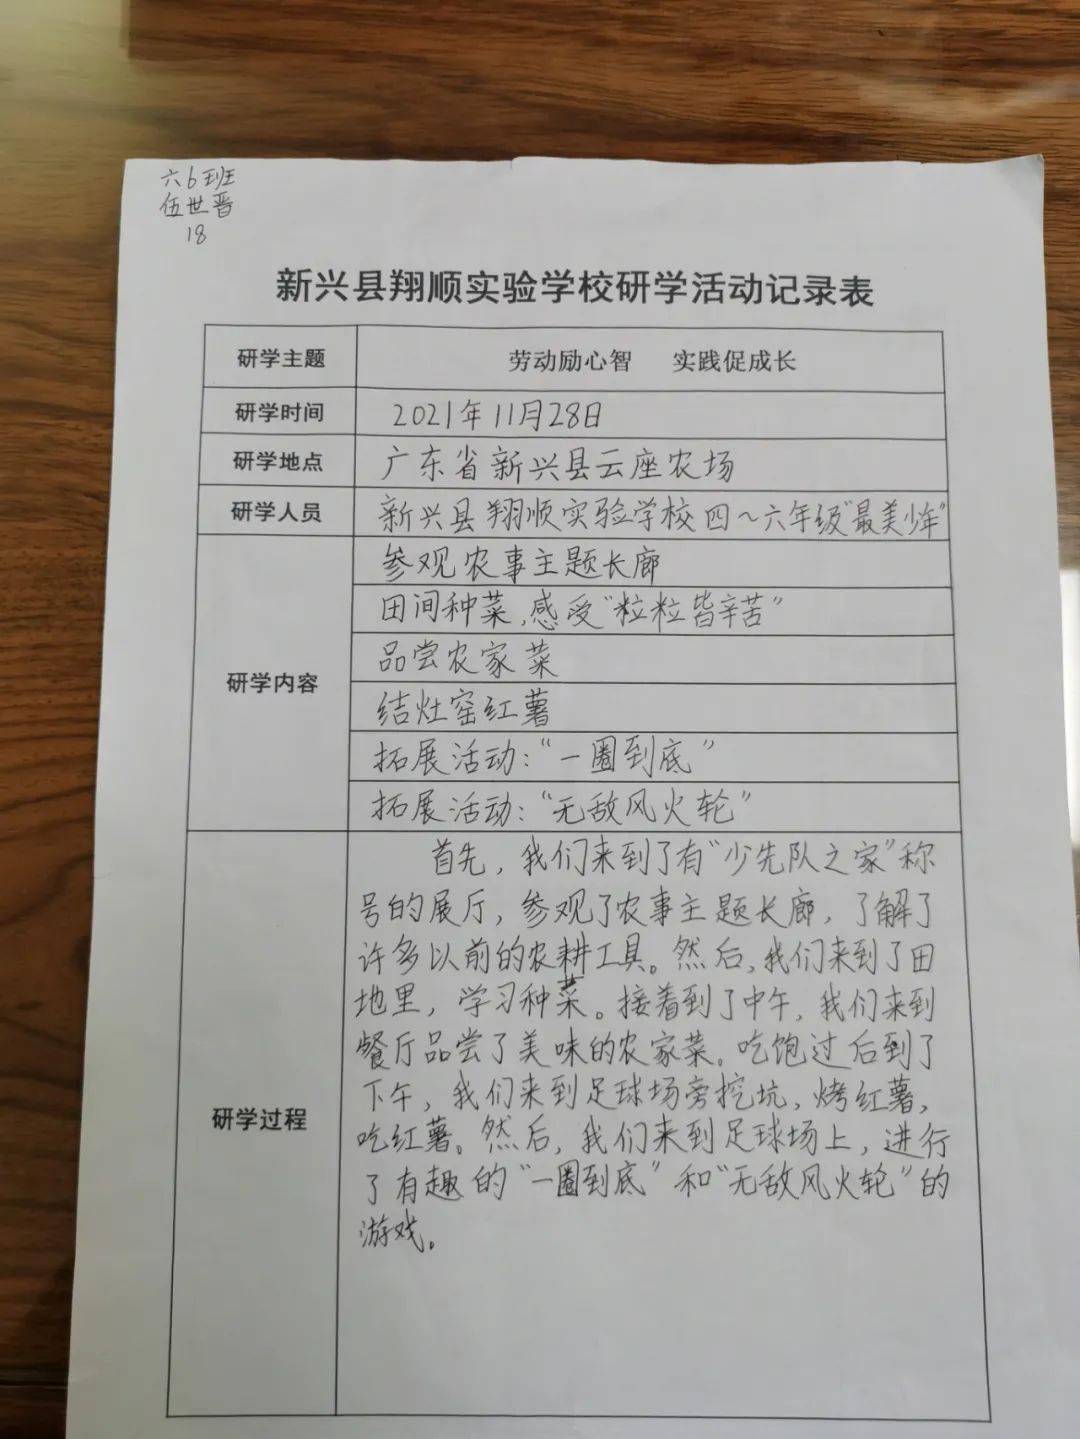 六6班
伍世晋
18
新兴县翔顺实验学校研学活动记录表
研学主题 劳动励心智 实践促成长
研学时间 2021年11月28日
研学地点 广东省新兴县云座农场
研学人员 新兴县翔顺实验学校四~六年级“最美少年”
研学内容
参观农事主题长廊
田间种菜,感受“粒粒皆辛苦”
品尝农家菜
结灶窑红薯
拓展活动:“一圈到底”
拓展活动:“无敌风火轮”
研学过程
首先,我们来到了有“少先队之家”称
号的展厅,参观了农事主题长廊,了解了
许多以前的农耕工具。然后,我们来到了田
地里,学习种菜。接着到了中午,我们来到
餐厅品尝了美味的农家菜。吃饱过后到了
下午,我们来到足球场旁挖坑,烤红薯,
吃红薯。然后,我们来到足球场上,进行
了有趣的“一圈到底”和“无敌风火轮”的
游戏。